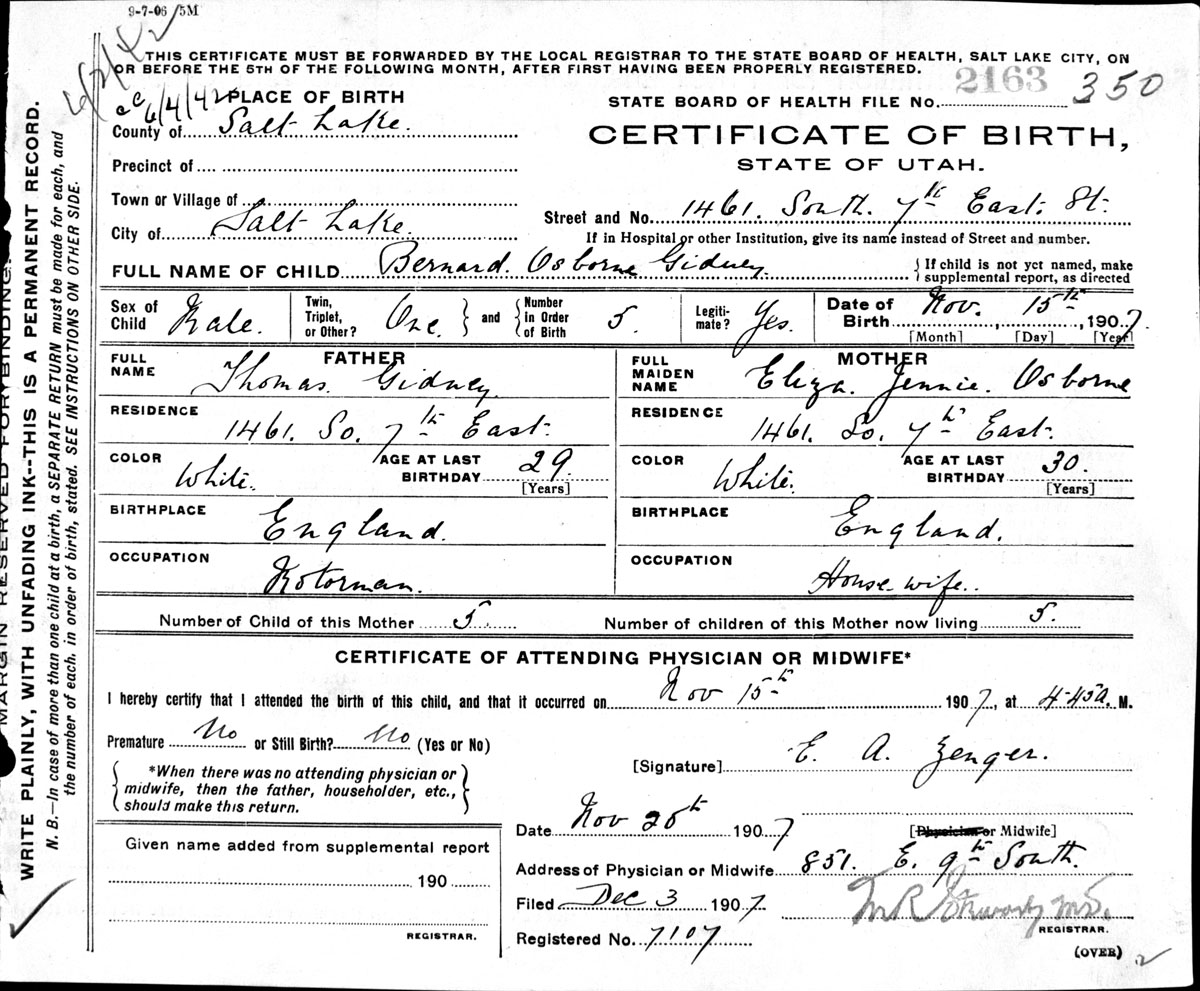 9-7-06 5M
THIS CERTIFICATE MUST BE FORWARDED BY THE LOCAL REGISTRAR TO THE STATE BOARD OF HEALTH, SALT LAKE CITY, ON
OR BEFORE THE 5TH OF THE FOLLOWING MONTH, AFTER FIRST HAVING BEEN PROPERLY REGISTERED.
6/2/42
cc 6/4/42
PLACE OF BIRTH
STATE BOARD OF HEALTH FILE No. 2163 350
County of Salt Lake.
CERTIFICATE OF BIRTH,
STATE OF UTAH.
Precinct of
Town or Village of
Street and No. 1461. South. 7th East. St.
City of Salt Lake.
If in Hospital or other Institution, give its name instead of Street and number.
FULL NAME OF CHILD Bernard. Osborne Gidney
{ If child is not yet named, make
supplemental report, as directed
Sex of Child Male.
Twin, Triplet, or Other? One } and { Number in Order of Birth 5.
Legiti-mate? Yes.
Date of Birth Nov. 15th, 1907.
[Month] [Day] [Year]
FATHER
FULL NAME Thomas. Gidney.
RESIDENCE 1461. So. 7th East.
COLOR White. AGE AT LAST BIRTHDAY 29 [Years]
BIRTHPLACE England.
OCCUPATION Motorman.
MOTHER
FULL MAIDEN NAME Eliza. Jennie. Osborne
RESIDENCE 1461. So. 7th East.
COLOR White. AGE AT LAST BIRTHDAY 30. [Years]
BIRTHPLACE England.
OCCUPATION House wife.
Number of Child of this Mother 5. Number of children of this Mother now living 5.
CERTIFICATE OF ATTENDING PHYSICIAN OR MIDWIFE*
I hereby certify that I attended the birth of this child, and that it occurred on Nov 15th 1907, at 4-45 a. M.
Premature No or Still Birth? No (Yes or No)
[Signature] E. A. Zenger.
{ *When there was no attending physician or
midwife, then the father, householder, etc.,
should make this return. }
Date Nov 20th 1907
[Physician or Midwife]
Given name added from supplemental report
190
REGISTRAR.
Address of Physician or Midwife 851. E. 9th South.
Filed Dec 3 1907.
Registered No. 7107
M.D.
REGISTRAR.
(OVER)
2
MARGIN RESERVED FOR BINDING
WRITE PLAINLY, WITH UNFADING INK--THIS IS A PERMANENT RECORD.
N. B.—In case of more than one child at a birth, a SEPARATE RETURN must be made for each, and
the number of each, in order of birth, stated. SEE INSTRUCTIONS ON OTHER SIDE.